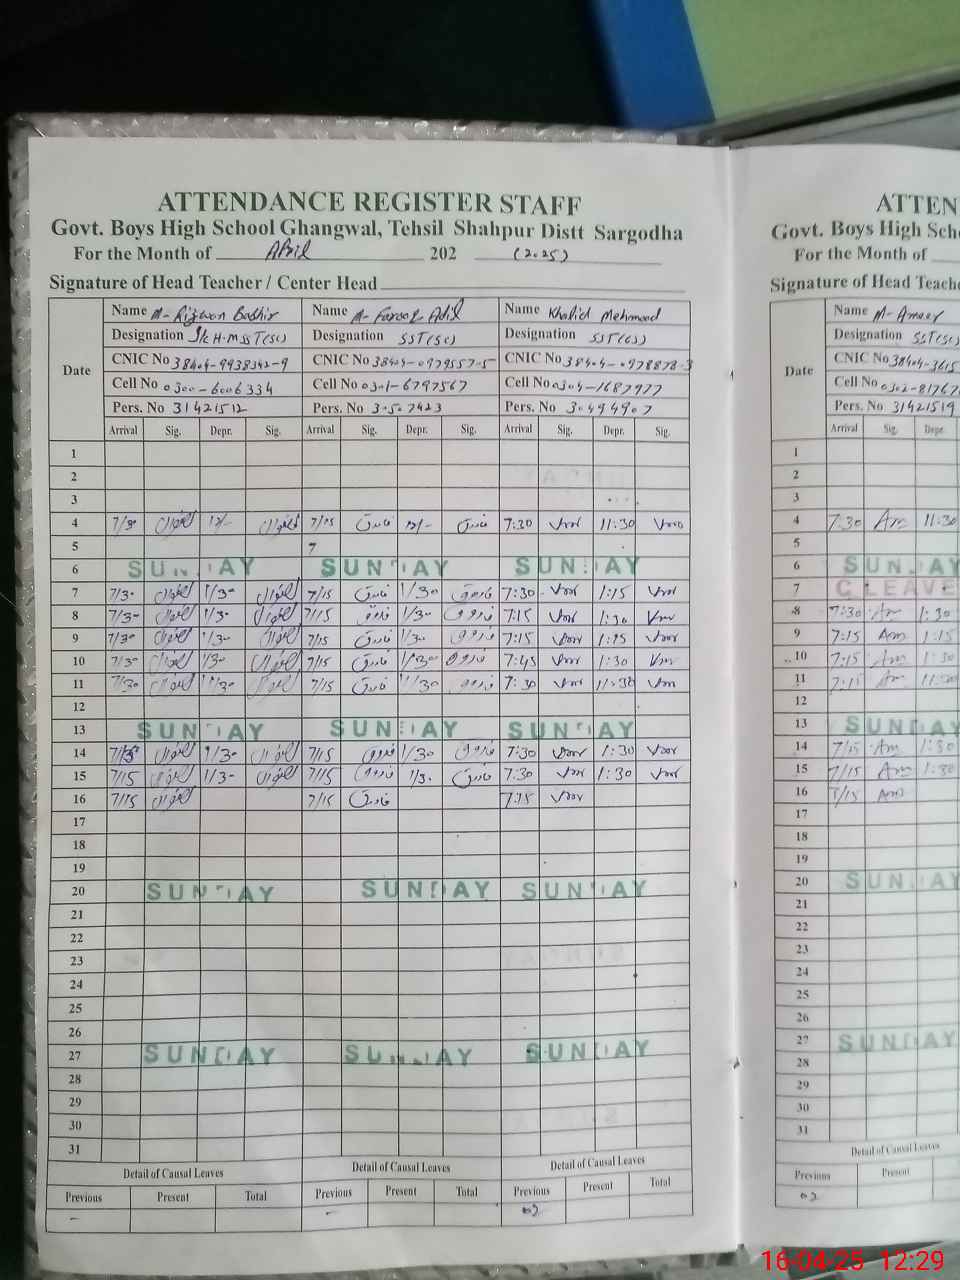 ATTENDANCE REGISTER STAFF
Govt. Boys High School Ghangwal, Tehsil Shahpur Distt Sargodha
For the Month of April 202 (2025)
Signature of Head Teacher / Center Head
Date
Name M-Rizwan Bashir Name M-Farooq Adil Name Khalid Mehmood
Designation S/c H.M SST(SC) Designation SST(SC) Designation SST(GS)
CNIC No 38404-9938342-9 CNIC No 38404-0979557-5 CNIC No 38404-0978878-3
Cell No 0300-6006334 Cell No 0301-6797567 Cell No 0304-1687977
Pers. No 31421512 Pers. No 30507423 Pers. No 30494907
Arrival Sig. Depr. Sig. Arrival Sig. Depr. Sig. Arrival Sig. Depr. Sig.
1
2
3
4 7/30 12/- 7/15 فاروق 12/- فاروق 7:30 11:30
5 7
6 SUNDAY SUNDAY SUNDAY
7 7/30 1/30 7/15 فاروق 1/30 فاروق 7:30 1:15
8 7/30 1/30 7/15 فاروق 1/30 فاروق 7:15 1:30
9 7/30 1/30 7/15 فاروق 1/30 فاروق 7:15 1:15
10 7/30 1/30 7/15 فاروق 1/30 فاروق 7:45 1:30
11 7/30 7/15 فاروق فاروق 7:30 11:30
12
13 SUNDAY SUNDAY SUNDAY
14 1/30 7/15 فاروق 1/30 فاروق 7:30 1:30
15 7/15 1/30 7/15 فاروق 1/30 فاروق 7:30 1:30
16 7/15 7/15 فاروق 7:15
17
18
19
20 SUNDAY SUNDAY SUNDAY
21
22
23
24
25
26
27 SUNDAY SUNDAY SUNDAY
28
29
30
31
Detail of Causal Leaves Detail of Causal Leaves Detail of Causal Leaves
Previous Present Total Previous Present Total Previous Present Total
- - 02
ATTEN
Govt. Boys High Scho
For the Month of
Signature of Head Teache
Date
Name M-Ameer
Designation SST(SC)
CNIC No 38404-3615
Cell No 0302-81767
Pers. No 31421519
Arrival Sig. Depr.
1
2
3
4 7:30 Am 11:30
5
6 SUNDAY
7 C LEAVE
8 7:30 Am 1:30
9 7:15 Am 1:15
10 7:15 Am 1:30
11 7:15 Am 11:30
12
13 SUNDAY
14 7/15 Am 1:30
15 7/15 Am 1:30
16 7/15 Am
17
18
19
20 SUNDAY
21
22
23
24
25
26
27 SUNDAY
28
29
30
31
Detail of Causal Leaves
Previous Present
02
16-04-25 12:29